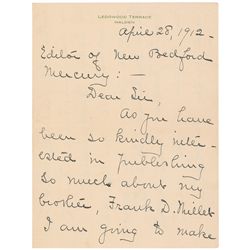 LEDGEWOOD TERRACE
MALDEN
April 28, 1912-
Editor of New Bedford
Mercury:—
Dear Sir,
As you have
been so kindly inter-
ested in publishing
so much about my
brother, Frank D. Millet
I am going to make